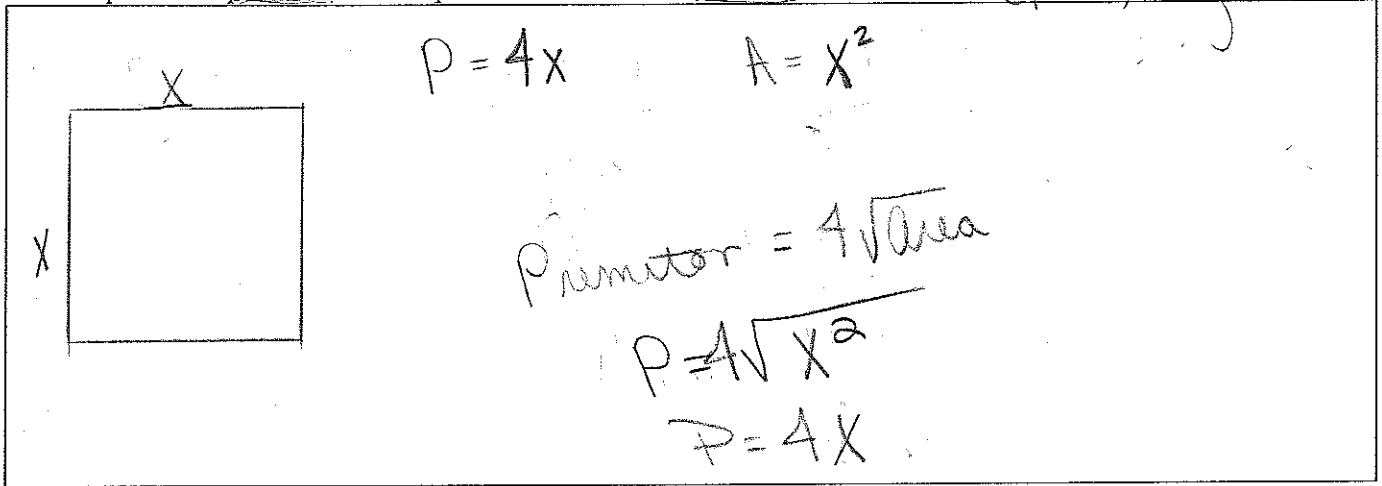 P = 4x
A = x²
x
x
Primitor = 4√area
P = 4√x²
P = 4x